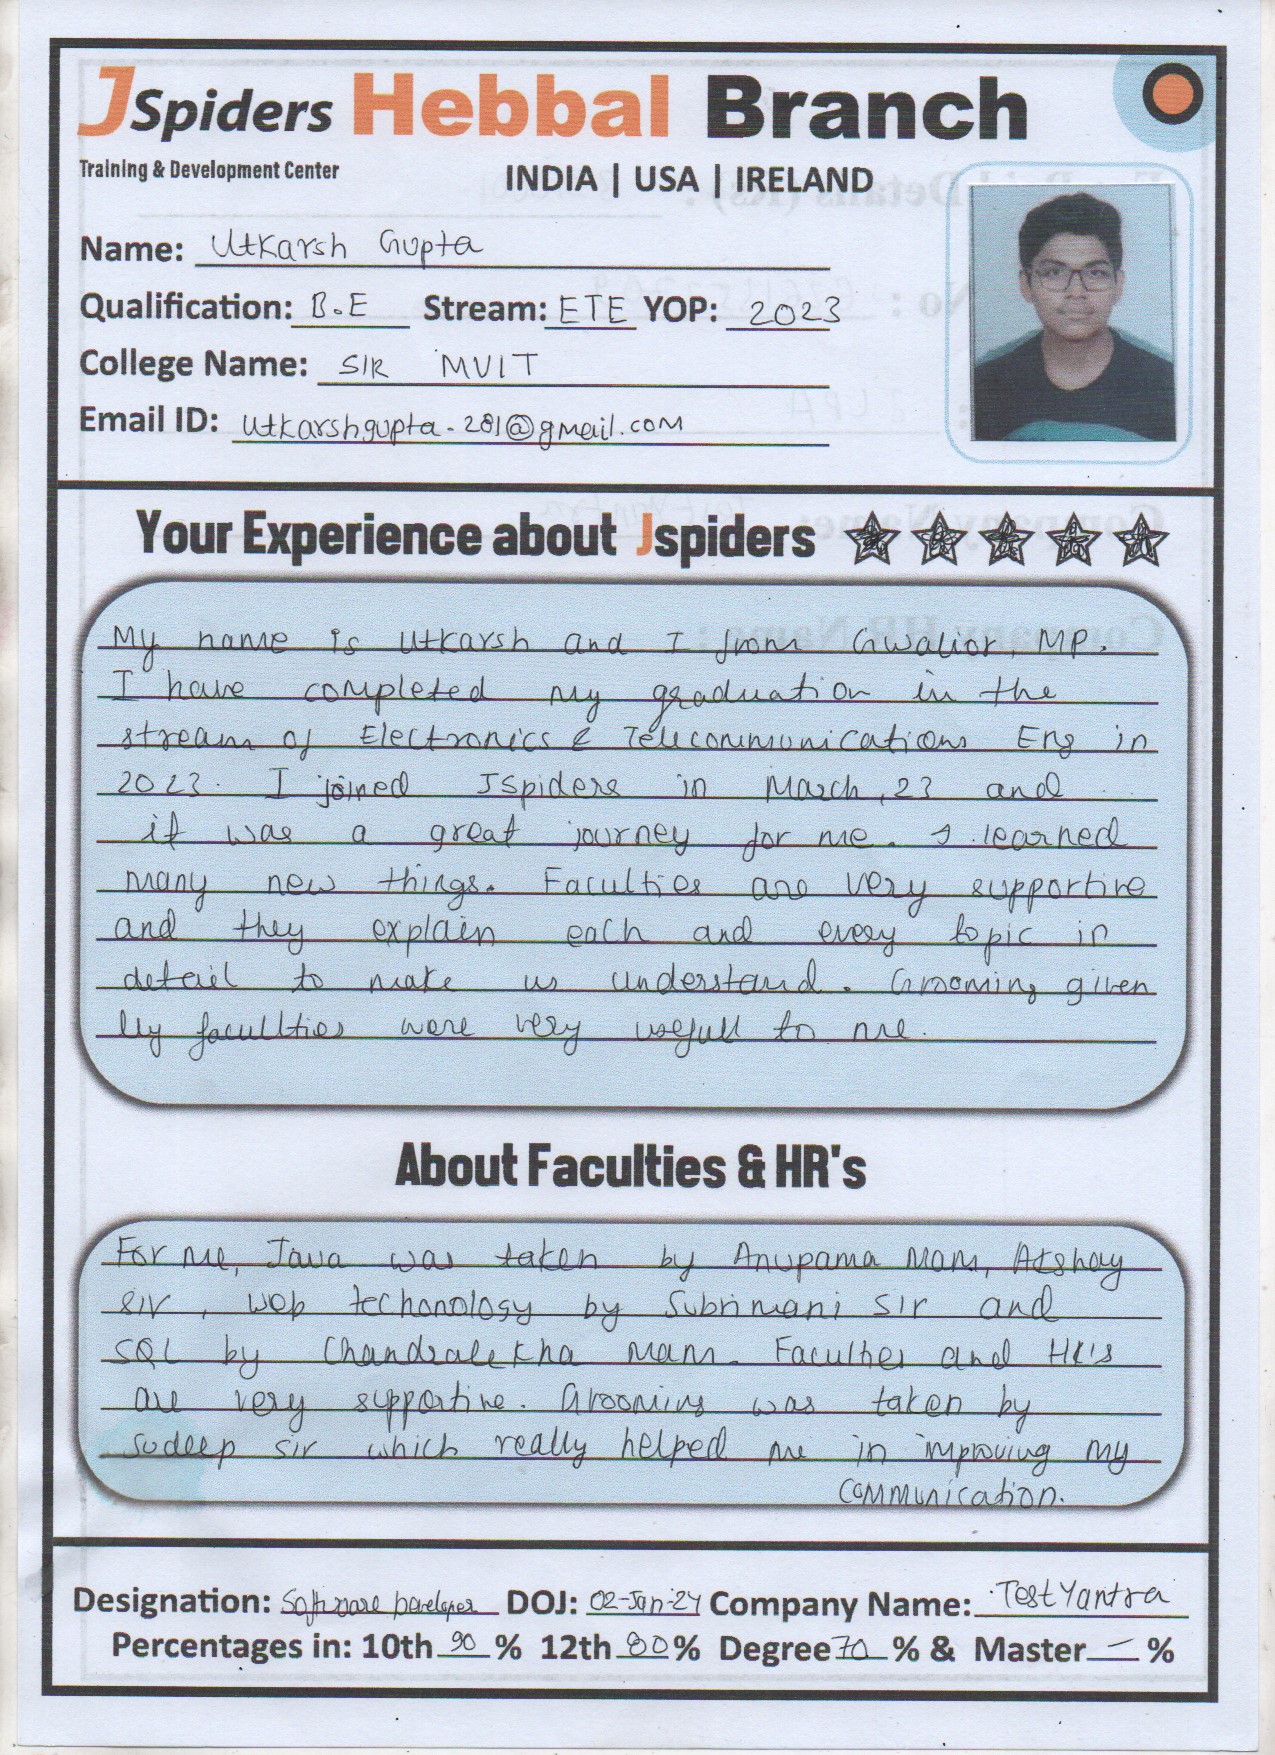 JSpiders Hebbal Branch
Training & Development Center
INDIA | USA | IRELAND
Name: Utkarsh Gupta
Qualification: B.E Stream: ETE YOP: 2023
College Name: SIR MVIT
Email ID: utkarshgupta.281@gmail.com
Your Experience about Jspiders
My name is Utkarsh and I from Gwalior, MP.
I have completed my graduation in the
stream of Electronics & Telecommunications Eng in
2023. I joined JSpiders in March,23 and
it was a great journey for me. I learned
many new things. Faculties are very supportive
and they explain each and every topic in
detail to make us understand. Grooming given
by facullties were very usefull to me.
About Faculties & HR's
For me, Java was taken by Anupama Mam, Akshay
sir, web techonology by Subrimani Sir and
SQL by Chandralekha Mam. Faculties and HR's
are very supportive. Grooming was taken by
Sudeep sir which really helped me in improving my
communication.
Designation: Software Developer DOJ: 02-Jan-24 Company Name: TestYantra
Percentages in: 10th 90 % 12th 80 % Degree 70 % & Master — %